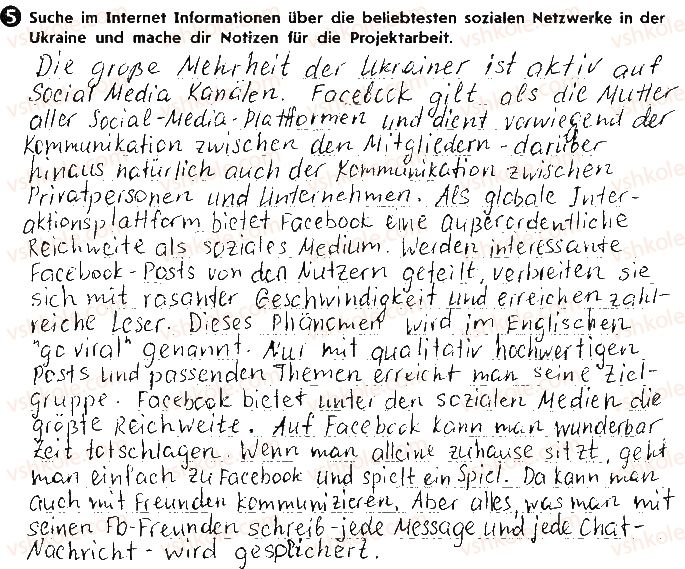 5 Suche im Internet Informationen über die beliebtesten sozialen Netzwerke in der
Ukraine und mache dir Notizen für die Projektarbeit.
Die große Mehrheit der Ukrainer ist aktiv auf
Social Media Kanälen. Facebook gilt als die Mutter
aller Social-Media-Plattformen und dient vorwiegend der
Kommunikation zwischen den Mitgliedern - darüber
hinaus natürlich auch der Kommunikation zwischen
Privatpersonen und Unternehmen. Als globale Inter-
aktionsplattform bietet Facebook eine außerordentliche
Reichweite als soziales Medium. Werden interessante
Facebook-Posts von den Nutzern geteilt, verbreiten sie
sich mit rasanter Geschwindigkeit und erreichen zahl-
reiche Leser. Dieses Phänomen wird im Englischen
"go viral" genannt. Nur mit qualitativ hochwertigen
Posts und passenden Themen erreicht man seine Ziel-
gruppe. Facebook bietet unter den sozialen Medien die
größte Reichweite. Auf Facebook kann man wunderbar
Zeit totschlagen. Wenn man alleine zuhause sitzt, geht
man einfach zu Facebook und spielt ein Spiel. Da kann man
auch mit Freunden kommunizieren. Aber alles, was man mit
seinen Fb-Freunden schreib - jede Message und jede Chat-
Nachricht - wird gesplichert.